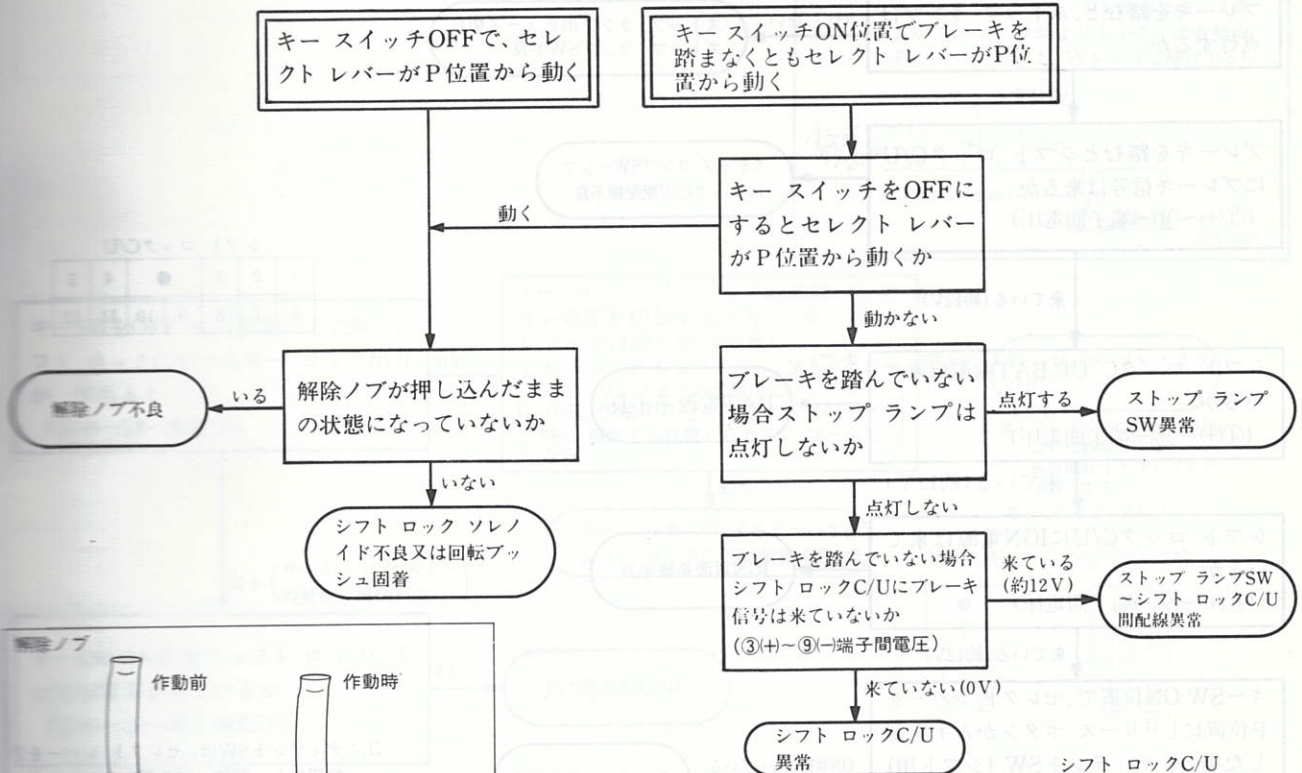 キー スイッチOFFで、セレ
クト レバーがP位置から動く
キー スイッチON位置でブレーキを
踏まなくともセレクト レバーがP位
置から動く
キー スイッチをOFFに
するとセレクト レバー
がP位置から動くか
動く
動かない
解除ノブが押し込んだまま
の状態になっていないか
いる
解除ノブ不良
いない
シフト ロック ソレノ
イド不良又は回転ブッ
シュ固着
ブレーキを踏んでいない
場合ストップ ランプは
点灯しないか
点灯する
ストップ ランプ
SW異常
点灯しない
ブレーキを踏んでいない場合
シフト ロックC/Uにブレーキ
信号は来ていないか
(③(+)~⑨(-)端子間電圧)
来ている
(約12V)
ストップ ランプSW
~シフト ロックC/U
間配線異常
来ていない(0V)
シフト ロックC/U
異常
解除ノブ
作動前
作動時
シフト ロックC/U